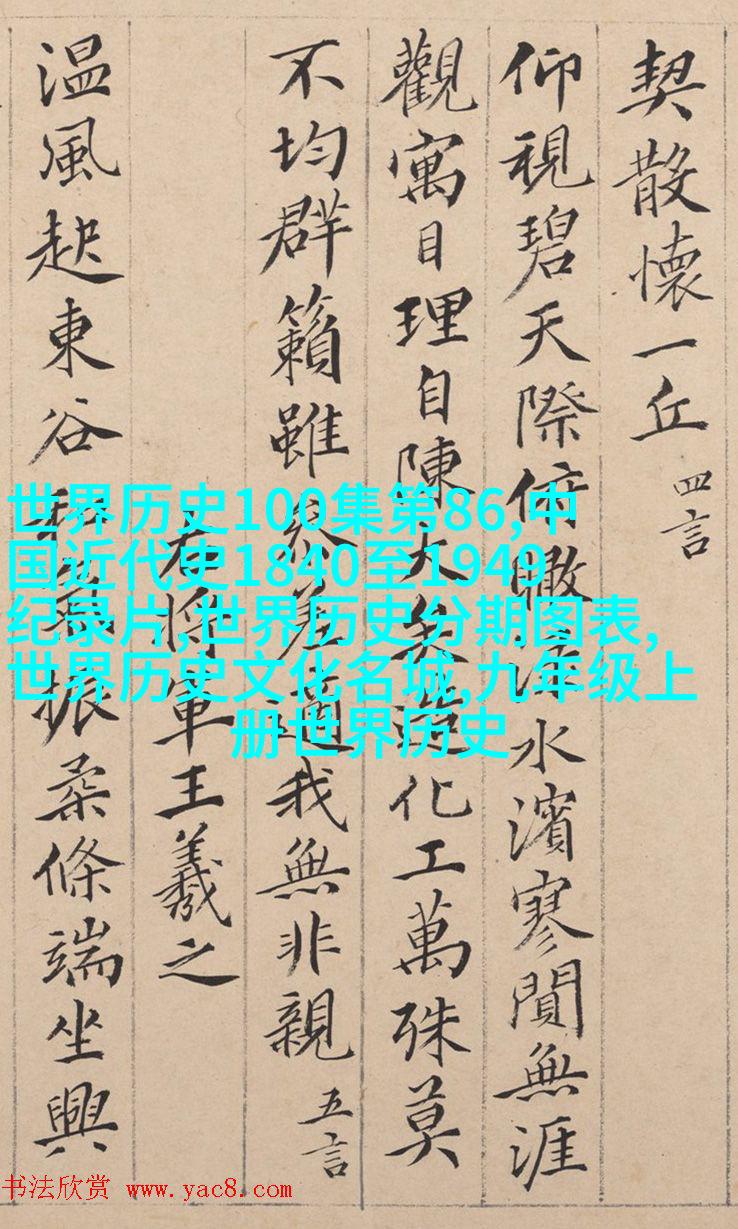 契散懷一丘 四言
仰視碧天際俯瞰水濱寥閴無涯
觀寓目理自陳大矣造化工萬殊莫
不均群籟雖參差適我無非親 五言
右將軍王羲之
温風起東谷和氣振柔條端坐興
世界历史100集第86,中
国近代史1840至1949
纪录片,世界历史分期图表,
世界历史文化名城,九年级上
册世界历史
书法欣赏 www.yac8.com